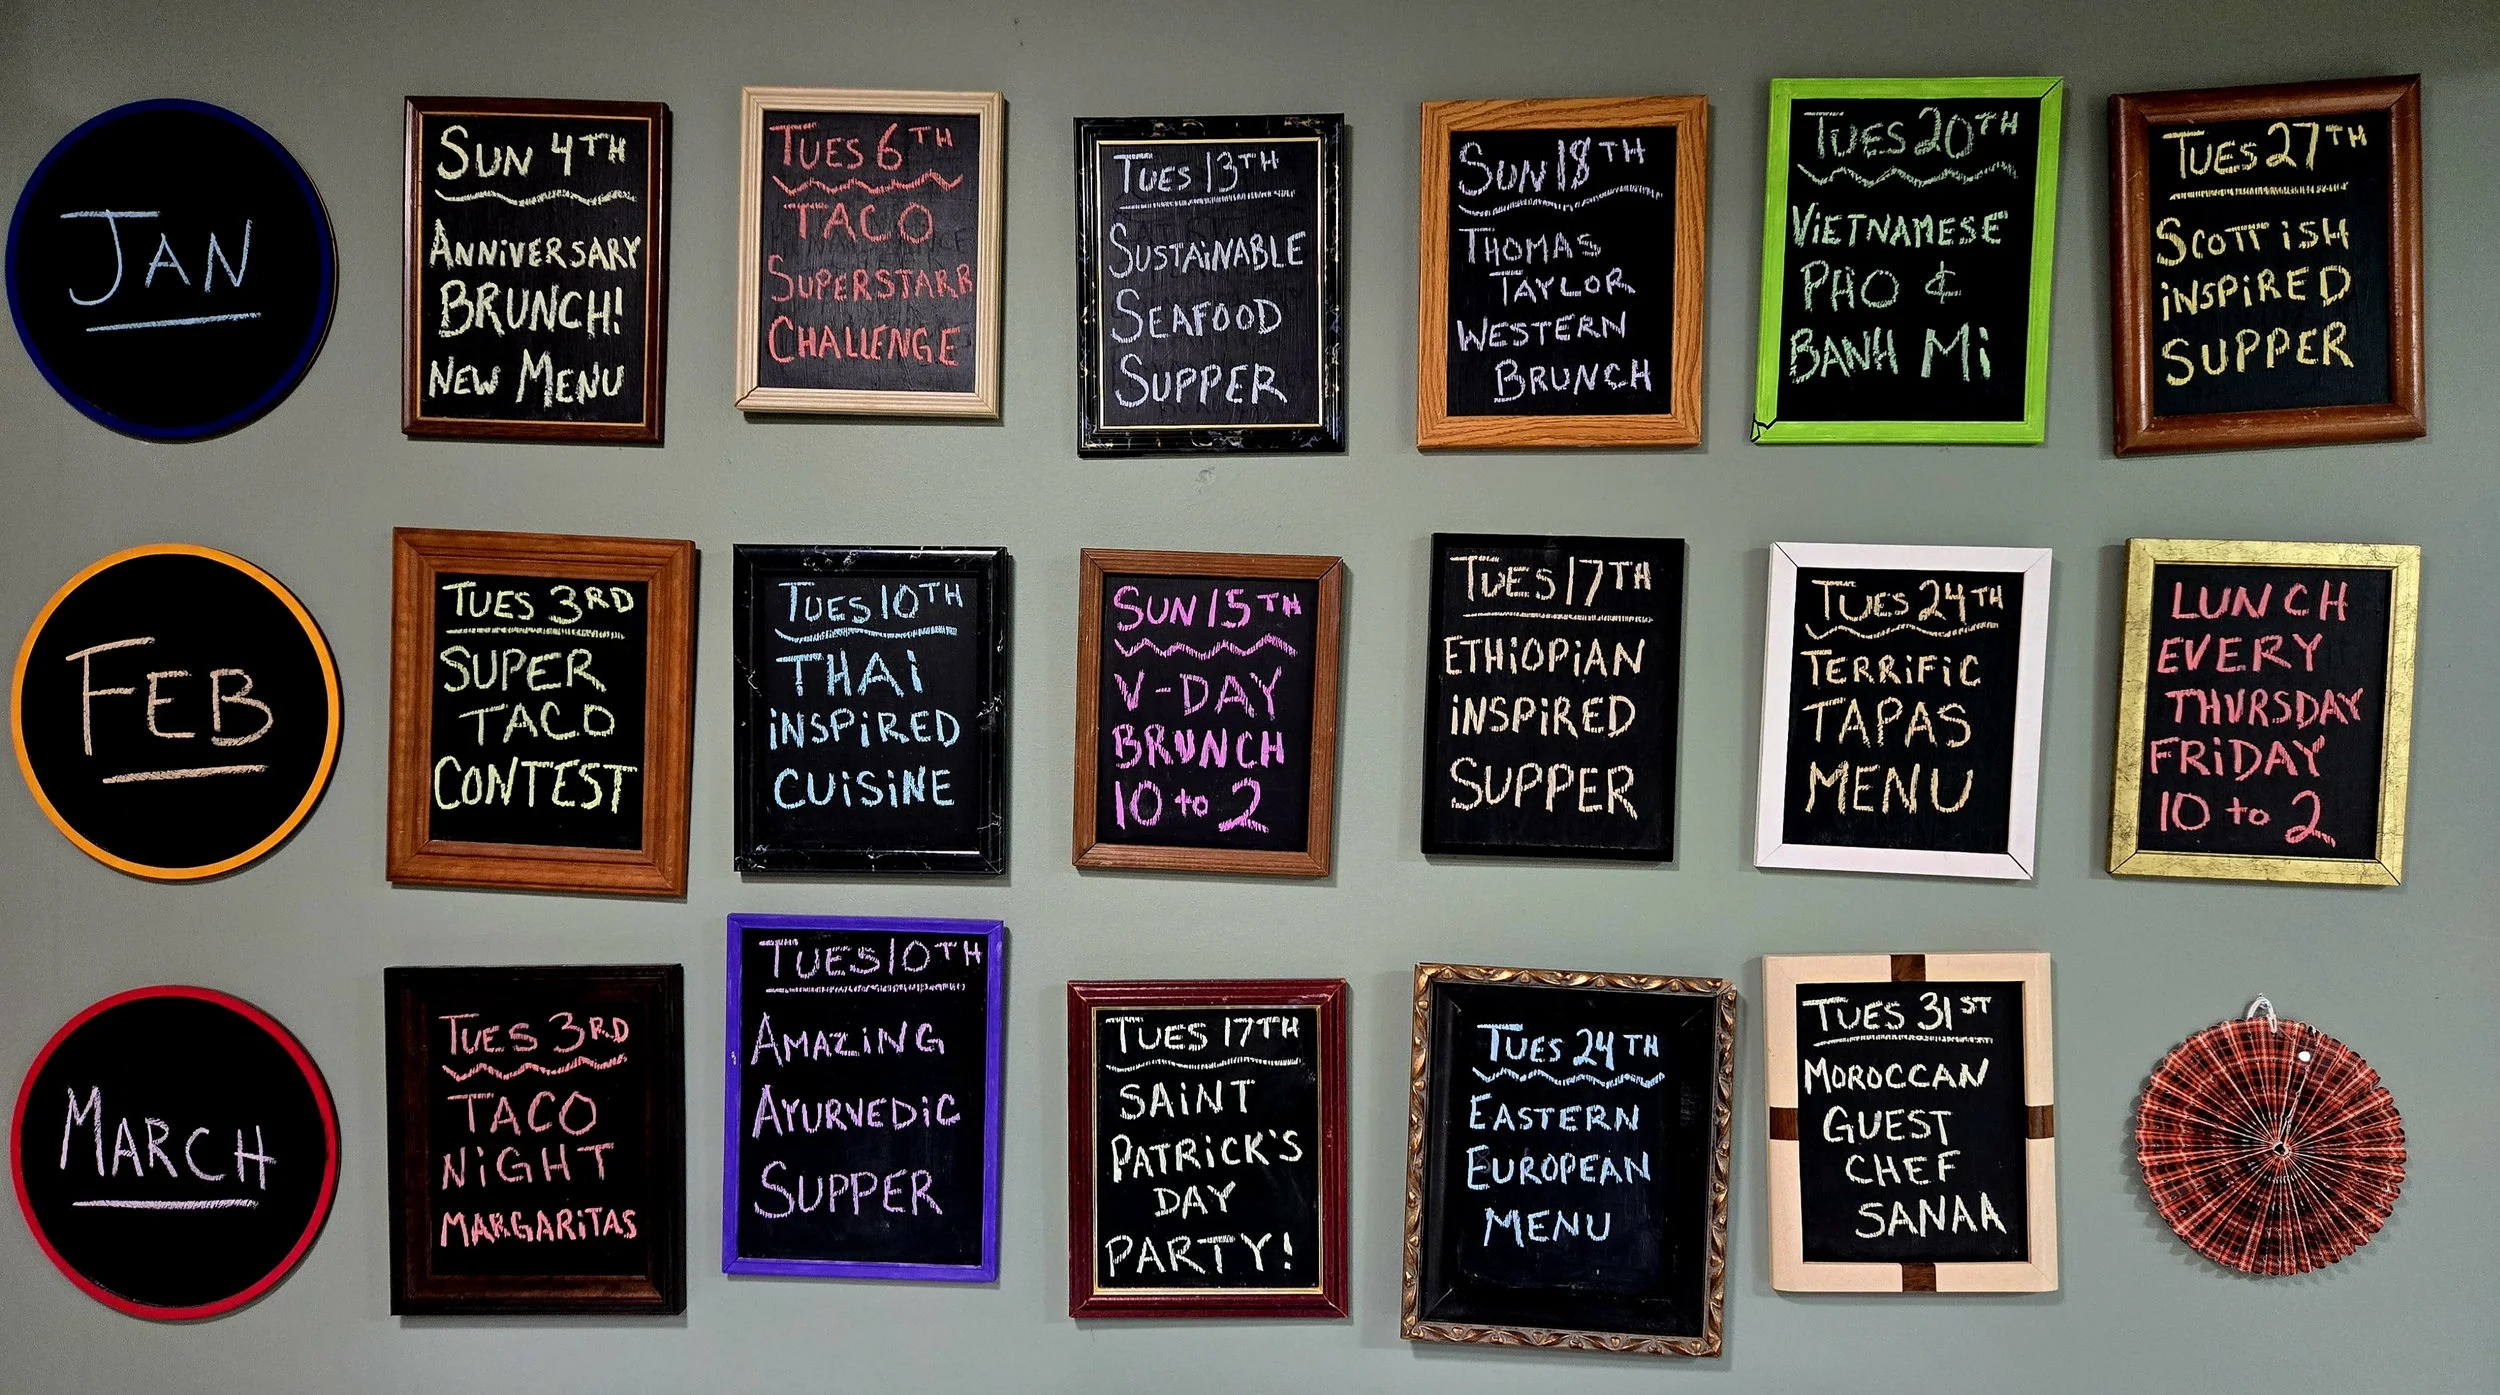 JAN
SUN 4TH
ANNIVERSARY
BRUNCH!
NEW MENU
TUES 6TH
TACO
SUPERSTARR
CHALLENGE
TUES 13TH
SUSTAINABLE
SEAFOOD
SUPPER
SUN 18TH
THOMAS
TAYLOR
WESTERN
BRUNCH
TUES 20TH
VIETNAMESE
PHO &
BANH Mi
TUES 27TH
SCOTTISH
iNSPiRED
SUPPER
FEB
TUES 3RD
SUPER
TACO
CONTEST
TUES 10TH
THAi
iNSPiRED
CUiSiNE
SUN 15TH
V-DAY
BRUNCH
10 to 2
TUES 17TH
ETHiOPiAN
iNSPiRED
SUPPER
TUES 24TH
TERRiFiC
TAPAS
MENU
LUNCH
EVERY
THURSDAY
FRiDAY
10 to 2
MARCH
TUES 3RD
TACO
NiGHT
MARGARiTAS
TUES 10TH
AMAZiNG
AYURVEDiC
SUPPER
TUES 17TH
SAiNT
PATRiCK'S
DAY
PARTY!
TUES 24TH
EASTERN
EUROPEAN
MENU
TUES 31ST
MOROCCAN
GUEST
CHEF
SANAA